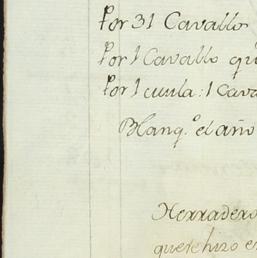 Por 31 Cavallo
Por 1 Cavallo qu
Por 1 cuula: 1 Cava
Blanq.º el año
Herradero
que se hizo e